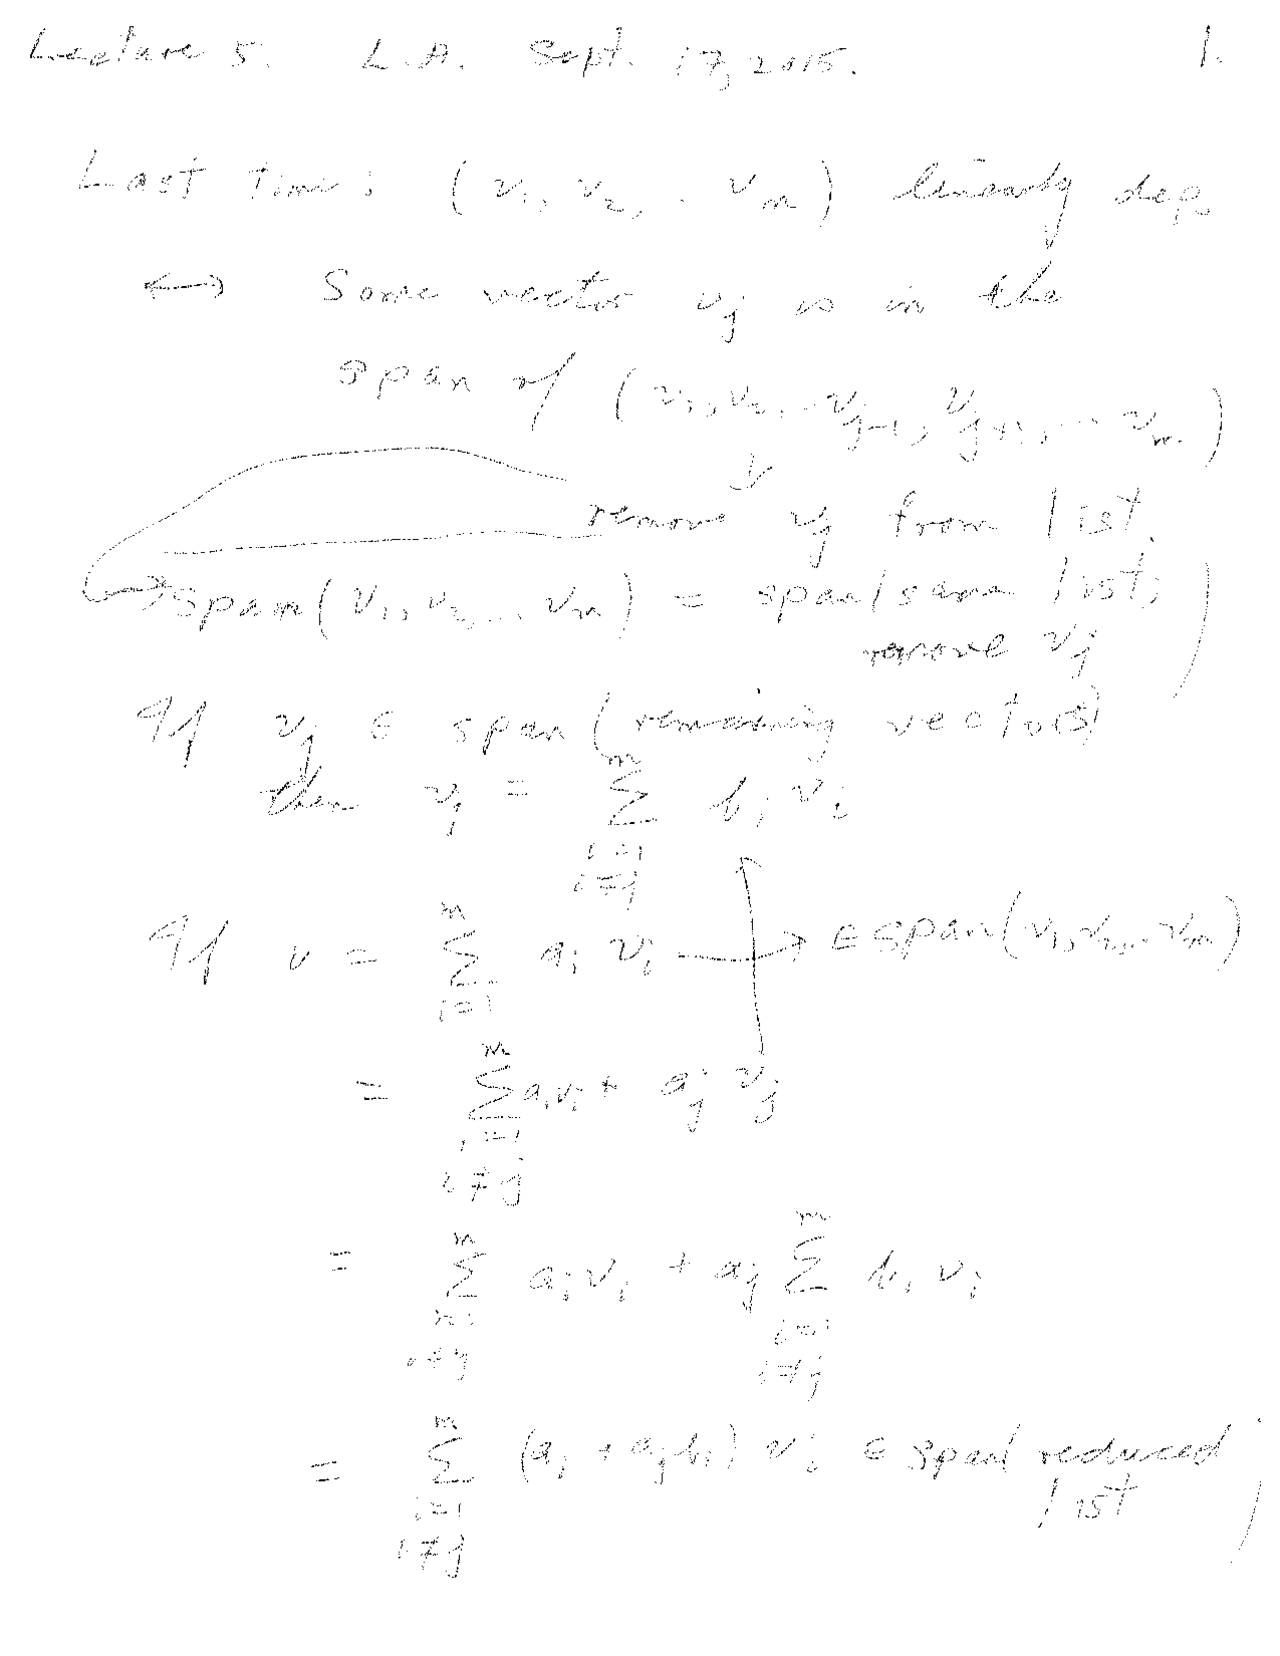 Lecture 5. L.A. Sept. 17, 2015. 1.
Last time: (v₁, v₂, .. vₘ) linearly dep.
↔ Some vector vⱼ is in the
span of (v₁, v₂, .. vⱼ₋₁, vⱼ₊₁, ... vₘ)
↓
remove vⱼ from list.
→ span(v₁, v₂, ... vₘ) = span(same list;
remove vⱼ)
If vⱼ ∈ span(remaining vectors)
then vⱼ = ∑_{i=1, i≠j}^{m} bᵢ vᵢ
If v = ∑_{i=1}^{m} aᵢ vᵢ → ∈ span(v₁, v₂, .. vₘ)
= ∑_{i=1, i≠j}^{m} aᵢvᵢ + aⱼ vⱼ
= ∑_{i=1, i≠j}^{m} aᵢvᵢ + aⱼ ∑_{i=1, i≠j}^{m} bᵢ vᵢ
= ∑_{i=1, i≠j}^{m} (aᵢ + aⱼbᵢ) vᵢ ∈ span(reduced
list)